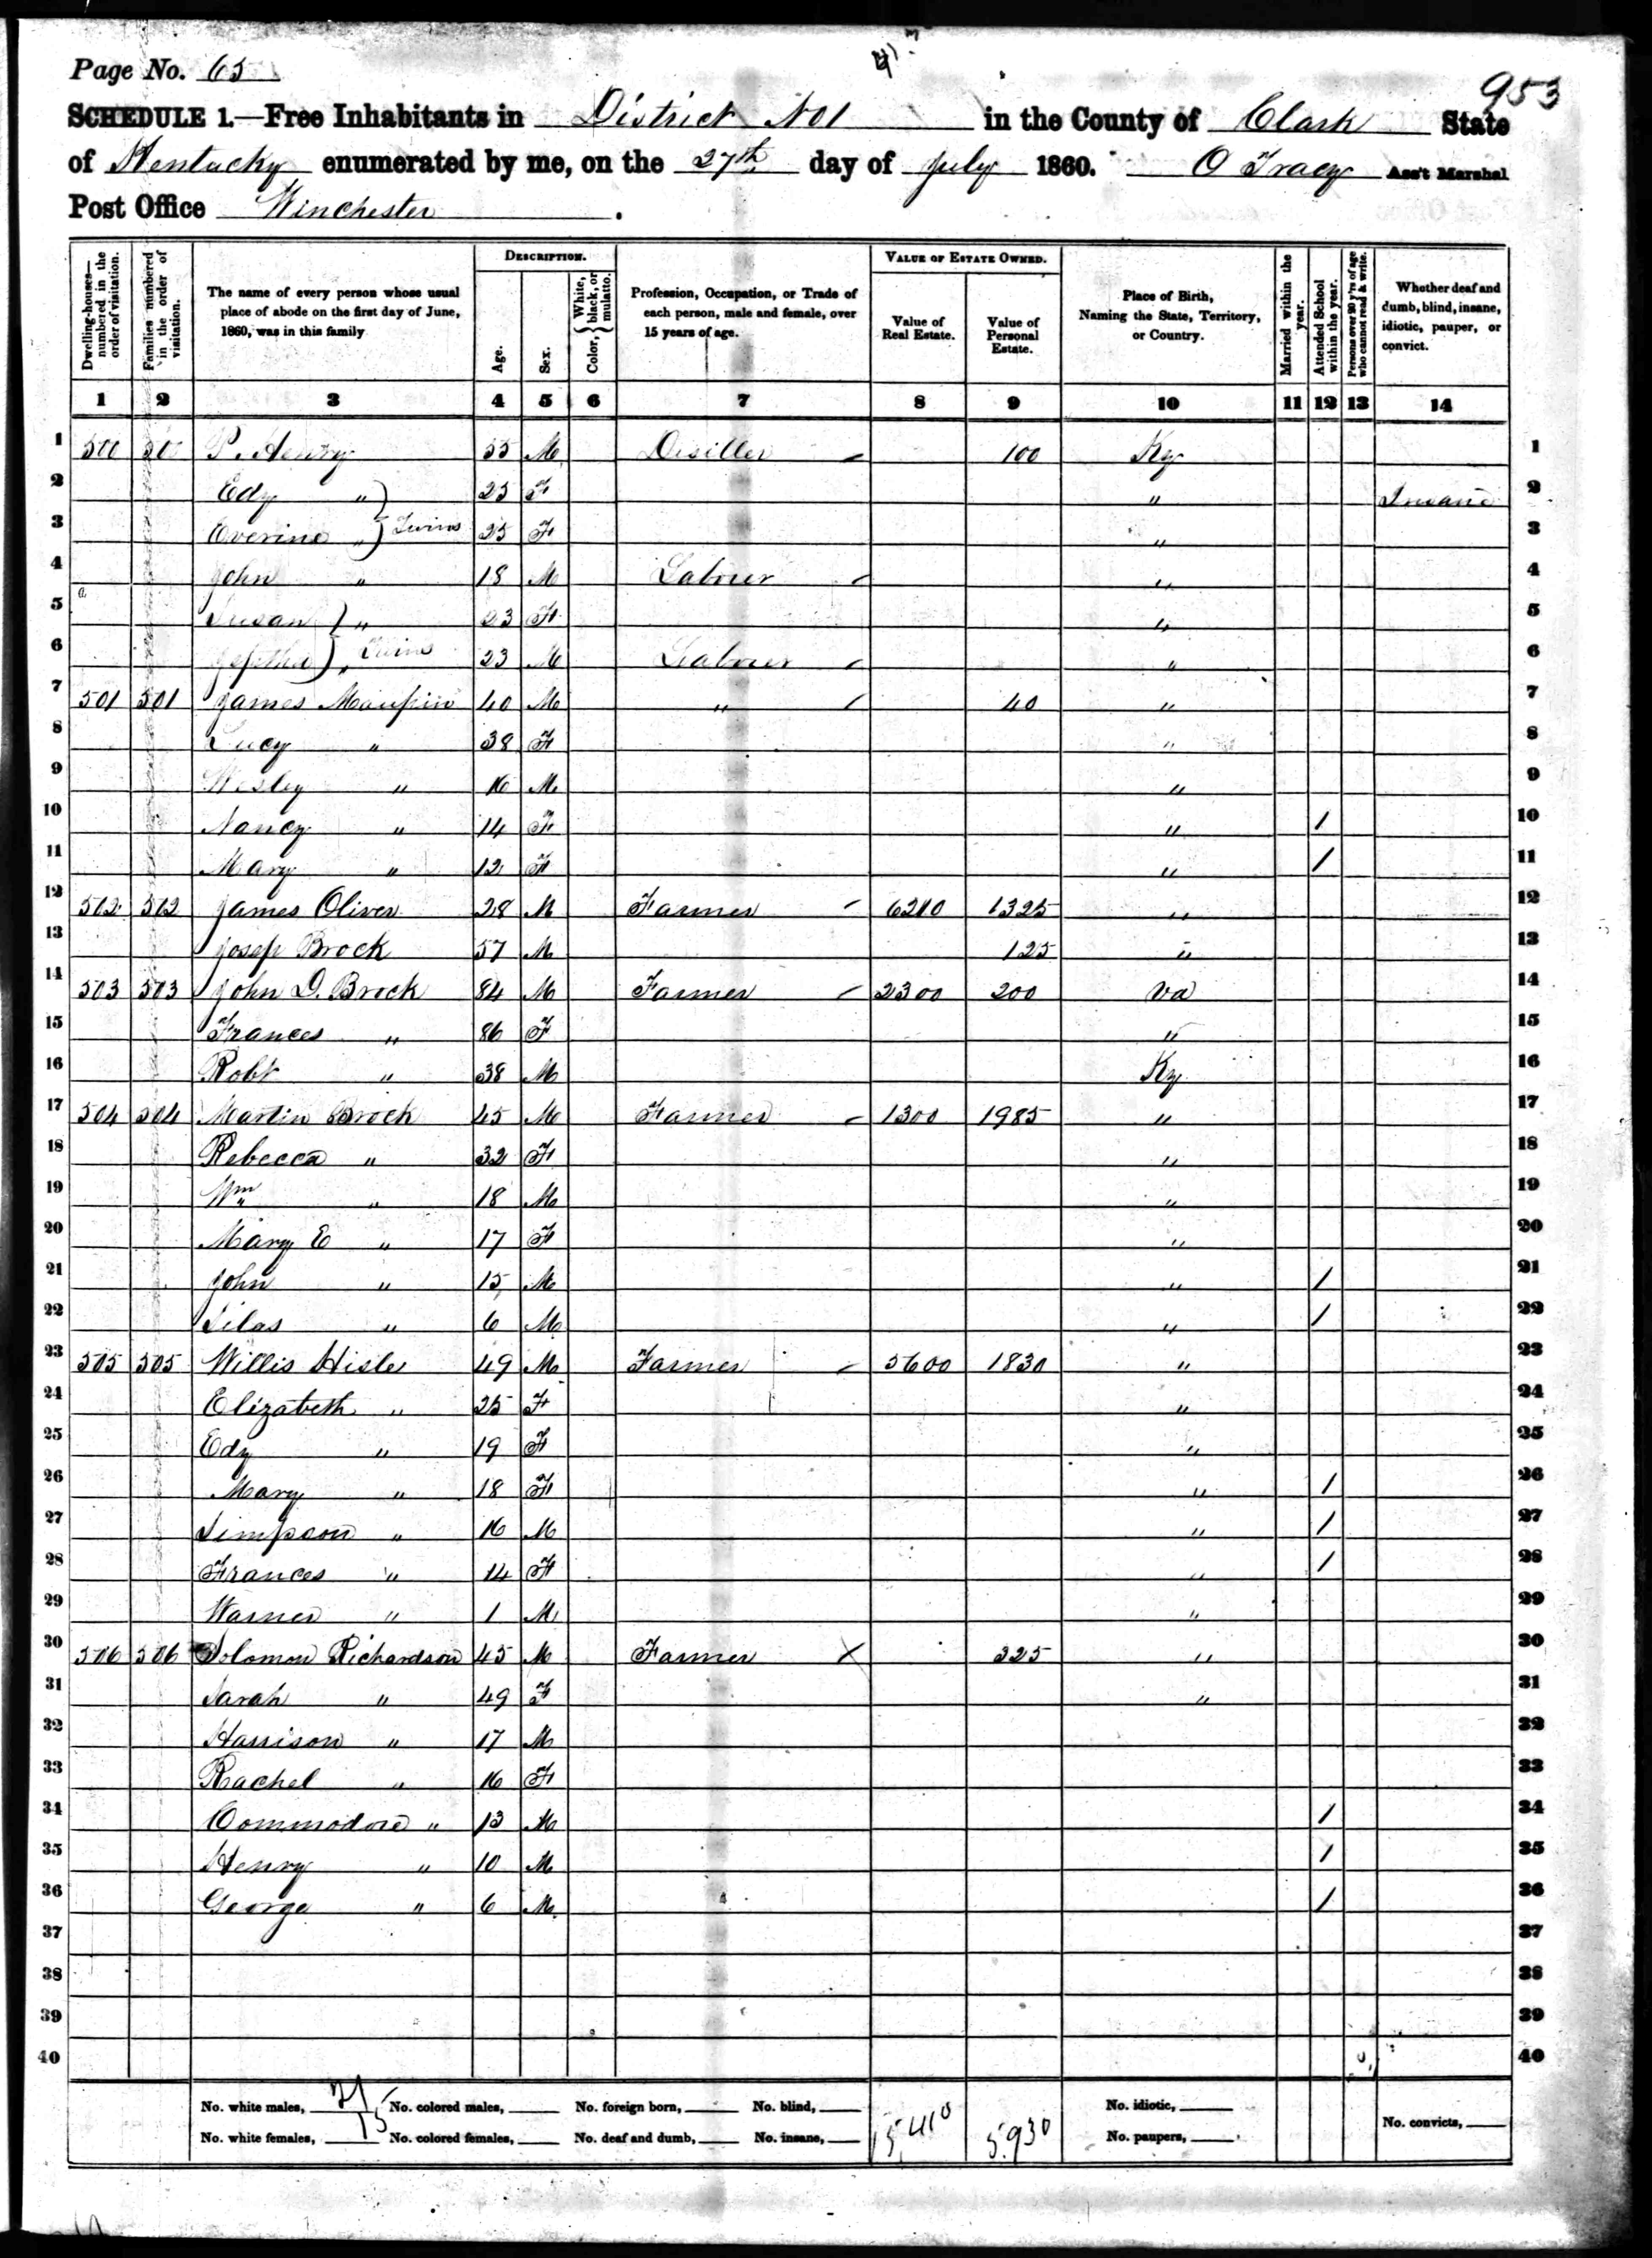 Page No. 65
953
SCHEDULE 1.—Free Inhabitants in District No 1 in the County of Clark State
of Kentucky enumerated by me, on the 27th day of July 1860. O Tracy Ass't Marshal
Post Office Winchester.
Dwelling-houses—numbered in the order of visitation.
Families numbered in the order of visitation.
The name of every person whose usual place of abode on the first day of June, 1860, was in this family
DESCRIPTION.
Age.
Sex.
Color, White, black, or mulatto.
Profession, Occupation, or Trade of each person, male and female, over 15 years of age.
VALUE OF ESTATE OWNED.
Value of Real Estate.
Value of Personal Estate.
Place of Birth, Naming the State, Territory, or Country.
Married within the year.
Attended School within the year.
Persons over 20 y'rs of age who cannot read & write.
Whether deaf and dumb, blind, insane, idiotic, pauper, or convict.
1 2 3 4 5 6 7 8 9 10 11 12 13 14
1 500 500 P. Henry 55 M Distiller 100 Ky 1
2 Edy " 25 F " Insane 2
3 " Twins 25 F " 3
4 John " 18 M Labourer " 4
5 Susan " 23 F " 5
6 Jeptha " Twins 23 M Labourer " 6
7 501 501 James Maupin 40 M " 40 " 7
8 Lucy " 38 F " 8
9 Wesley " 16 M " 9
10 Nancy " 14 F " / 10
11 Mary " 12 F " / 11
12 502 502 James Oliver 28 M Farmer 6210 1325 " 12
13 Josep Brock 57 M 125 " 13
14 503 503 John D. Brock 84 M Farmer 2300 200 Va 14
15 Frances " 86 F " 15
16 Robt " 38 M Ky 16
17 504 504 Martin Brock 45 M Farmer 1300 1985 " 17
18 Rebecca " 32 F " 18
19 Wm " 18 M " 19
20 Mary E " 17 F " 20
21 John " 15 M " / 21
22 Silas " 6 M " / 22
23 505 505 Willis Hisle 49 M Farmer 5600 1830 " 23
24 Elizabeth " 25 F " 24
25 Edy " 19 F " 25
26 Mary " 18 F " / 26
27 Simpson " 16 M " / 27
28 Frances " 14 F " / 28
29 Warner " 1 M " 29
30 506 506 Solomon Richardson 45 M Farmer X 325 " 30
31 Sarah " 49 F " 31
32 Harrison " 17 M 32
33 Rachel " 16 F 33
34 Commodore " 13 M / 34
35 Henry " 10 M / 35
36 George " 6 M / 36
37 37
38 38
39 39
40 40
No. white males, 21 No. colored males, No. foreign born, No. blind, 15,410 5,930 No. idiotic, No. convicts,
No. white females, 15 No. colored females, No. deaf and dumb, No. insane, No. paupers,